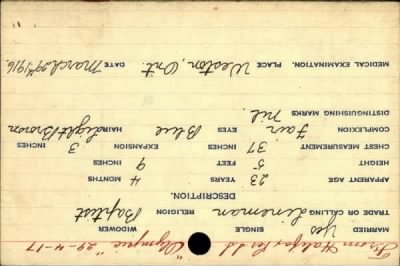 From Halifax per S.S. "Olympic" 29-4-17
MARRIED Yes SINGLE WIDOWER
TRADE OR CALLING Lineman RELIGION Baptist
DESCRIPTION.
APPARENT AGE 23 YEARS 4 MONTHS
HEIGHT 5 FEET 9 INCHES
CHEST MEASUREMENT 37 INCHES EXPANSION 3 INCHES
COMPLEXION Fair EYES Blue HAIR Light Brown
DISTINGUISHING MARKS Nil.
MEDICAL EXAMINATION. PLACE Weston, Ont DATE March 29th/1916.